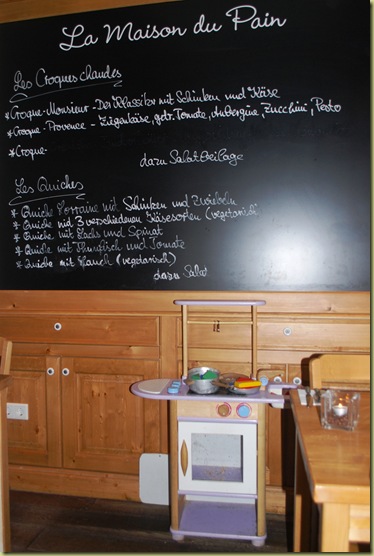 La Maison du Pain
Les Croques chaudes
*Croque-Monsieur - Der Klassiker mit Schinken und Käse
*Croque-Provence - Ziegenkäse, getr. Tomate, Aubergine, Zucchini, Pesto
*Croque-
dazu Salatbeilage
Les Quiches
* Quiche Lorraine mit Schinken und Zwiebeln
* Quiche mit 3 verschiedenen Käsesorten (vegetarisch)
* Quiche mit Lachs und Spinat
* Quiche mit Thunfisch und Tomate
* Quiche mit Lauch (vegetarisch)
dazu Salat